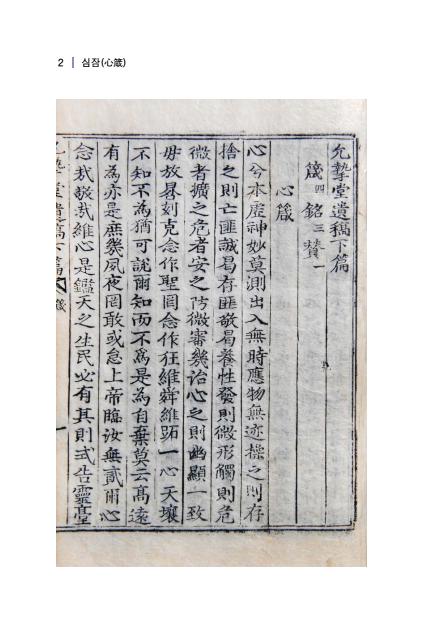 2 | 심잠(心箴)
允摯堂遺稿下篇
箴四 銘三 贊一
心箴
心兮本虛神妙莫測出入無時應物無迹操之則存
捨之則亡匪誠曷存匪敬曷養性發則微形觸則危
微者擴之危者安之防微審幾治心之則幽顯一致
毋放晷刻克念作聖罔念作狂維舜維跖一心天壤
不知不為猶可說爾知而不為是為自棄莫云高遠
有為亦是庶幾夙夜罔敢或怠上帝臨汝無貳爾心
念哉敬哉維心是鑑天之生民必有其則式告靈臺
允摯堂遺稿下篇 箴 一